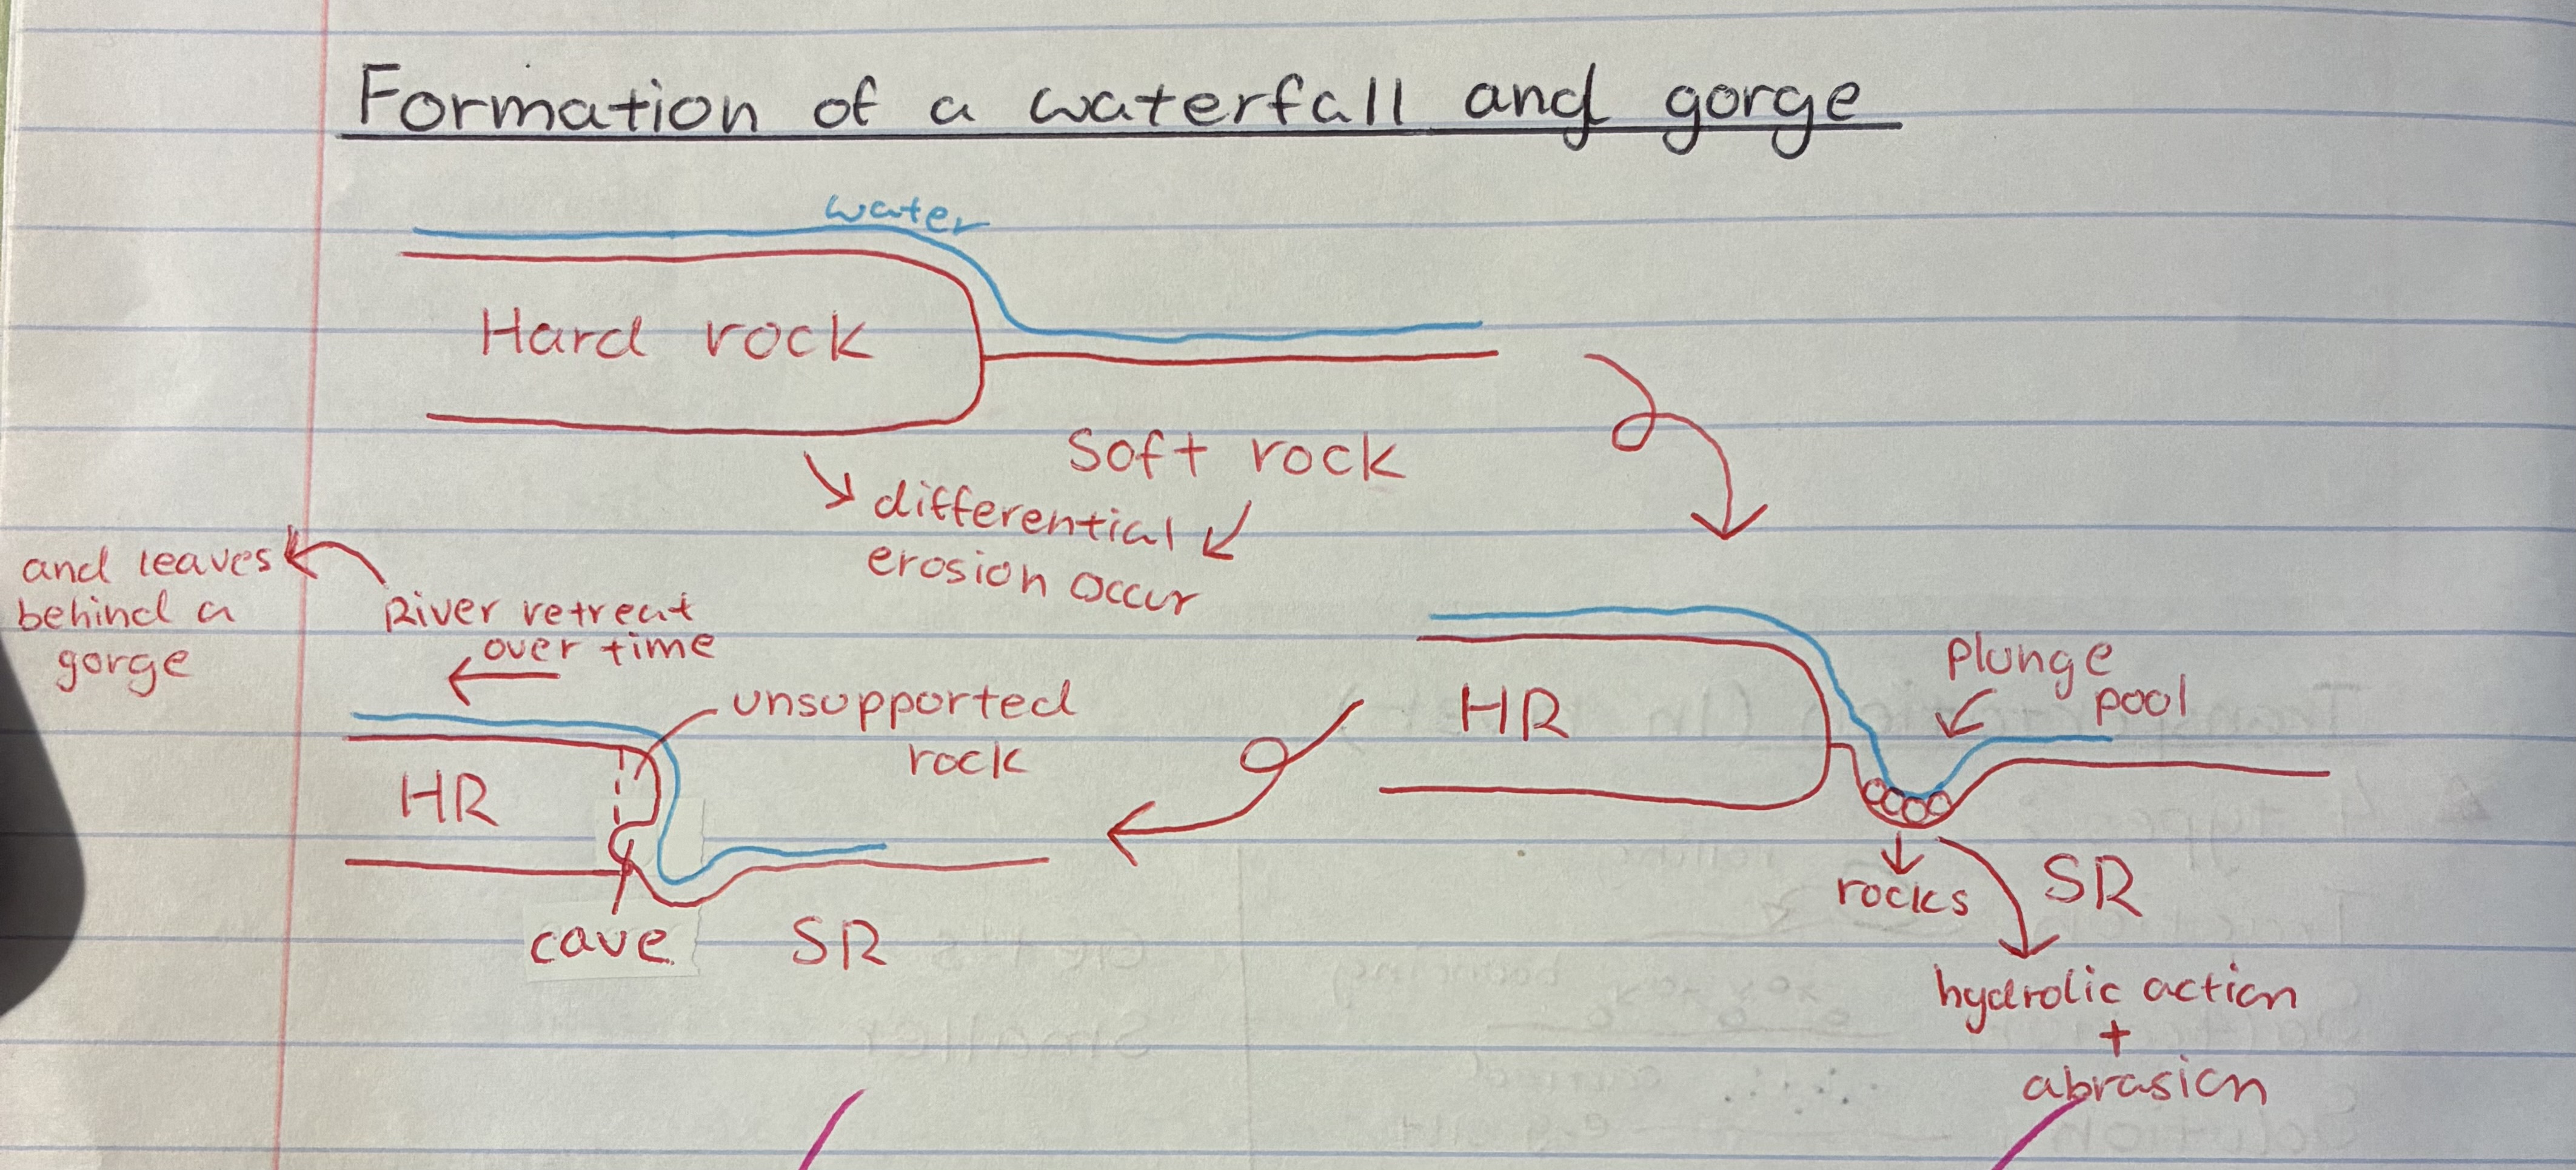 Formation of a waterfall and gorge
water
Hard rock
Soft rock
differential
erosion occur
HR
Plunge
pool
rocks
SR
hydrolic action
+
abrasion
unsupported
rock
HR
cave
SR
River retreat
over time
and leaves
behind a
gorge